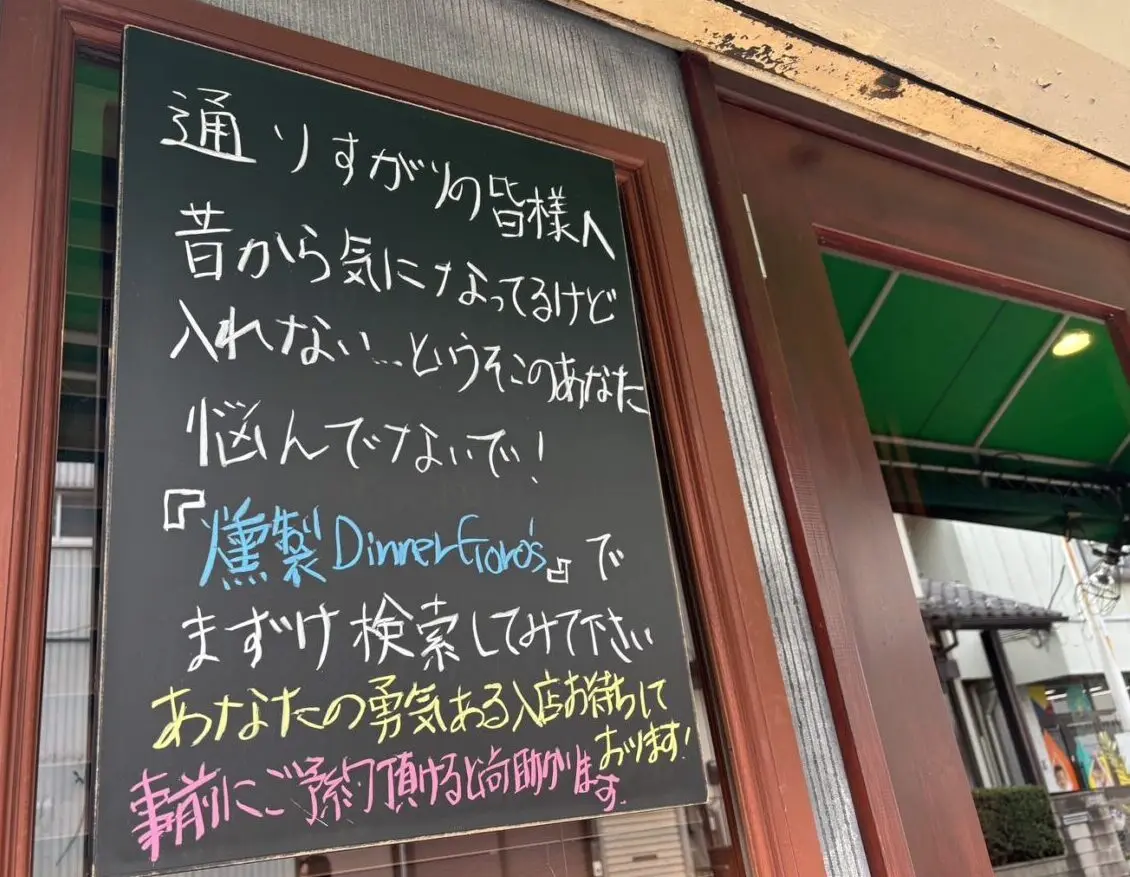 通りすがりの皆様へ
昔から気になってるけど
入れない…というそこのあなた
悩んでないで!
『燻製DinnerGoro's』で
まずは検索してみて下さい
あなたの勇気ある入店お待ちして
おります!
事前にご予約頂けると尚助かります